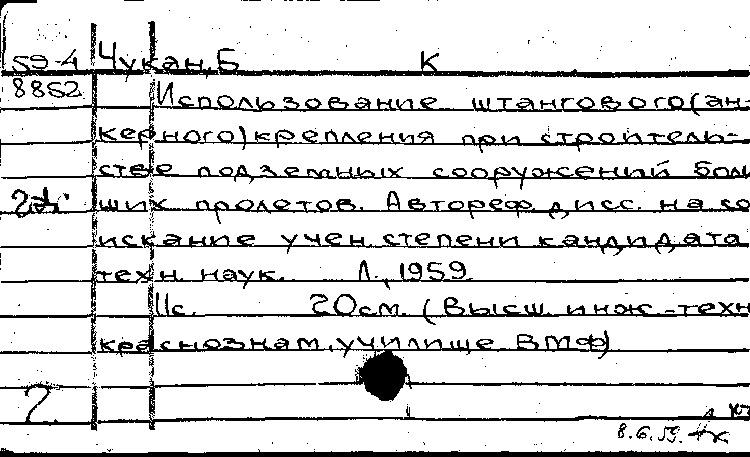 59-4 Чукан, Б К
8852 Использование штангового (ан-
керного) крепления при строитель-
стве подземных сооружений боль
ших пролетов. Автореф дисс. на со
искание учен. степени кандидата
техн. наук. Л., 1959.
11с. 20см. (Высш. инж.-техн
краснознам. училище ВМФ)
2
8.6.59.